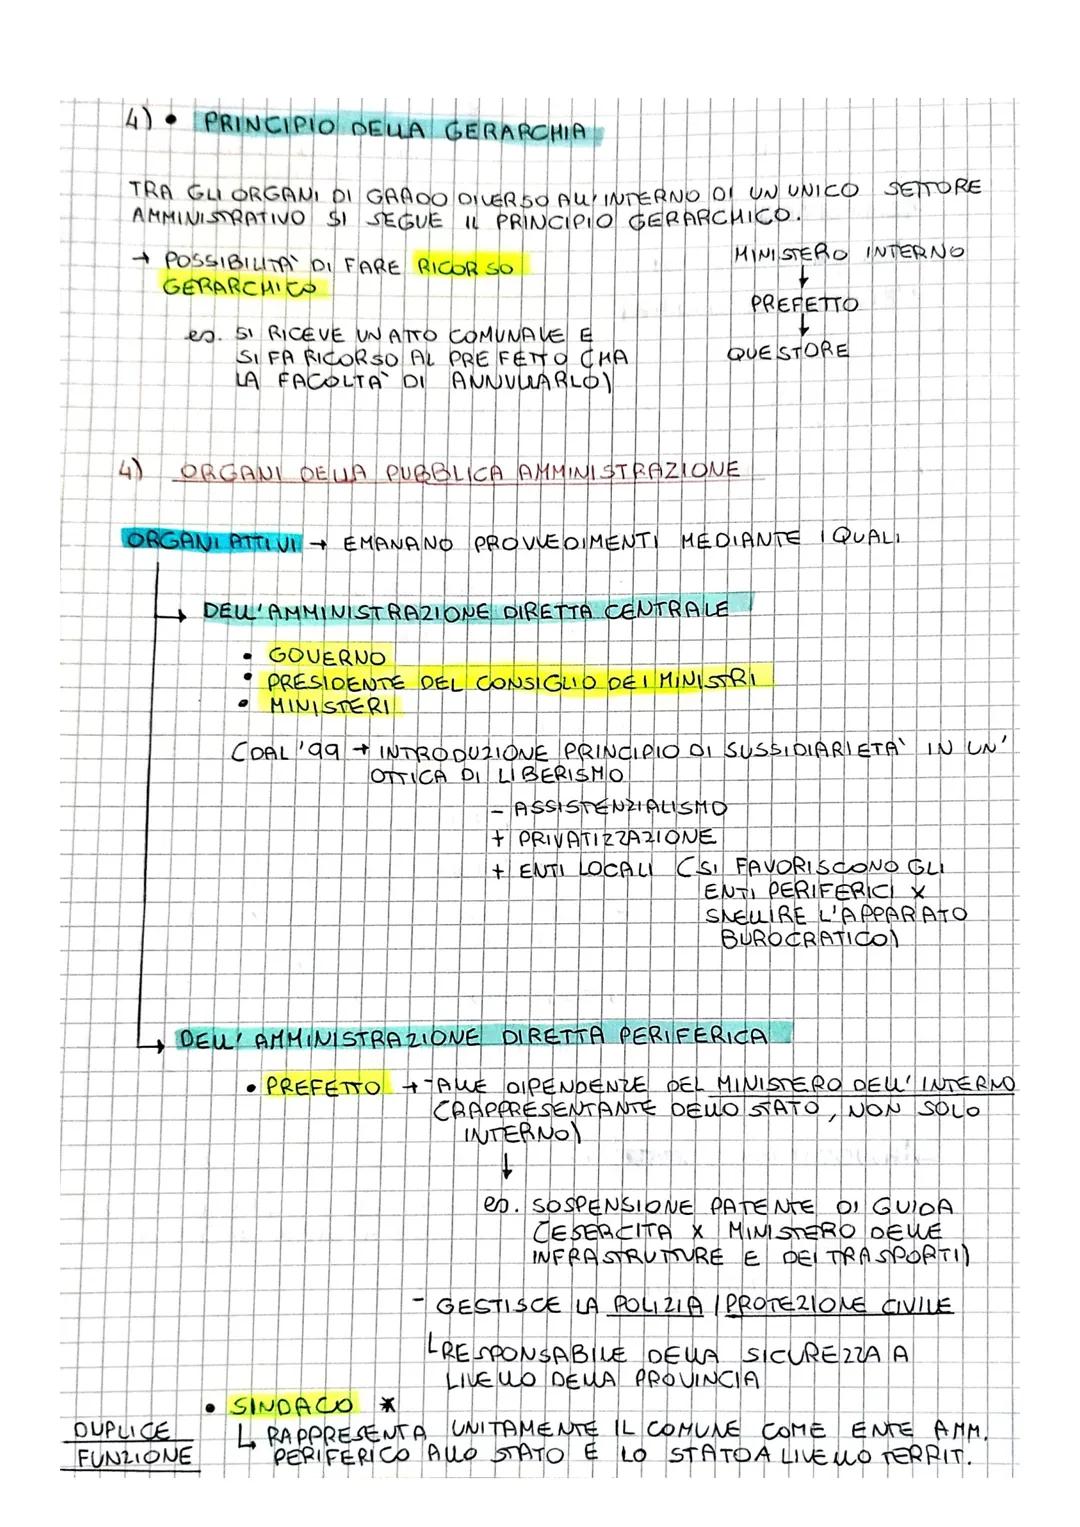 4) • PRINCIPIO DELLA GERARCHIA
TRA GLI ORGANI DI GRADO DIVERSO ALL'INTERNO DI UN UNICO SETTORE
AMMINISTRATIVO SI SEGUE IL PRINCIPIO GERARCHICO.
→ POSSIBILITÀ DI FARE RICORSO
GERARCHICO
es. SI RICEVE UN ATTO COMUNALE E
SI FA RICORSO AL PREFETTO (HA
LA FACOLTÀ DI ANNULLARLO)
MINISTERO INTERNO
↓
PREFETTO
↓
QUESTORE
4) ORGANI DELLA PUBBLICA AMMINISTRAZIONE
ORGANI ATTIVI → EMANANO PROVVEDIMENTI MEDIANTE I QUALI
→ DELL'AMMINISTRAZIONE DIRETTA CENTRALE
• GOVERNO
• PRESIDENTE DEL CONSIGLIO DEI MINISTRI
• MINISTERI
(DAL '99 → INTRODUZIONE PRINCIPIO DI SUSSIDIARIETÀ IN UN'
OTTICA DI LIBERISMO
- ASSISTENZIALISMO
+ PRIVATIZZAZIONE
+ ENTI LOCALI (SI FAVORISCONO GLI
ENTI PERIFERICI X
SNELLIRE L'APPARATO
BUROCRATICO)
→ DELL'AMMINISTRAZIONE DIRETTA PERIFERICA
• PREFETTO → - ALLE DIPENDENZE DEL MINISTERO DELL'INTERNO
(RAPPRESENTANTE DELLO STATO, NON SOLO
INTERNO)
↓
es. SOSPENSIONE PATENTE DI GUIDA
(ESERCITA X MINISTERO DELLE
INFRASTRUTTURE E DEI TRASPORTI)
- GESTISCE LA POLIZIA / PROTEZIONE CIVILE
↳ RESPONSABILE DELLA SICUREZZA A
LIVELLO DELLA PROVINCIA
• SINDACO *
DUPLICE
FUNZIONE
↳ RAPPRESENTA UNITAMENTE IL COMUNE COME ENTE AMM.
PERIFERICO ALLO STATO E LO STATO A LIVELLO TERRIT.